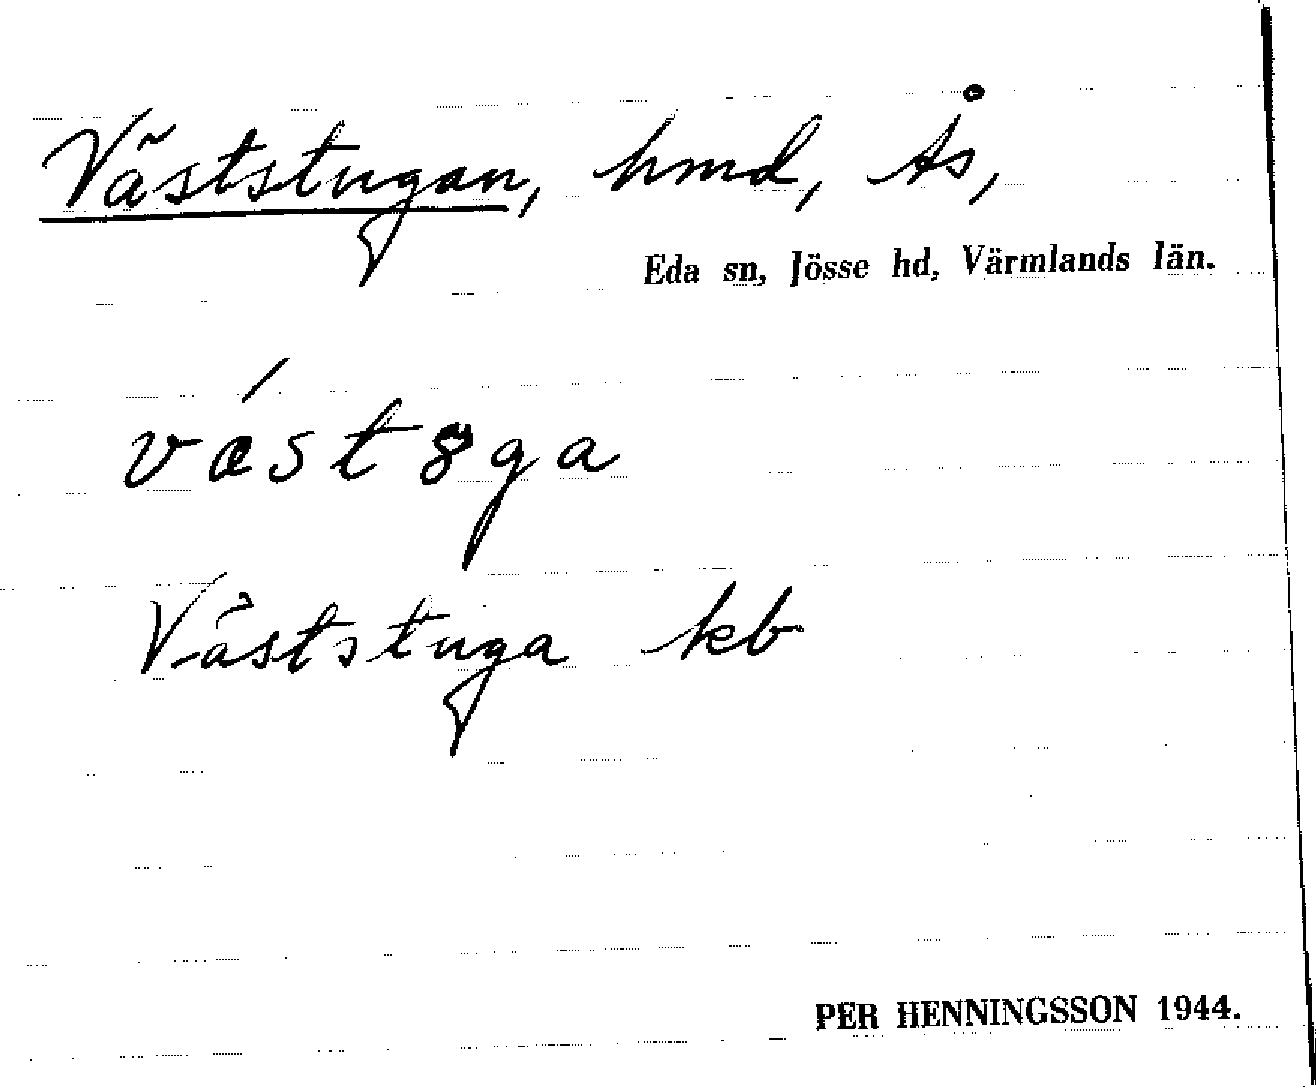 Väststugan, hmd, Ås,
Eda sn, Jösse hd, Värmlands län.
Väststuga kb
PER HENNINGSSON 1944.